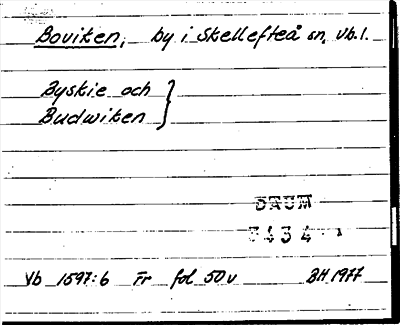 Boviken, by i Skellefteå sn, Vb.l.
Byskie och
Budwiken }
DAUM
3434
Vb 1597:6 Fr fol 50v BH 1977